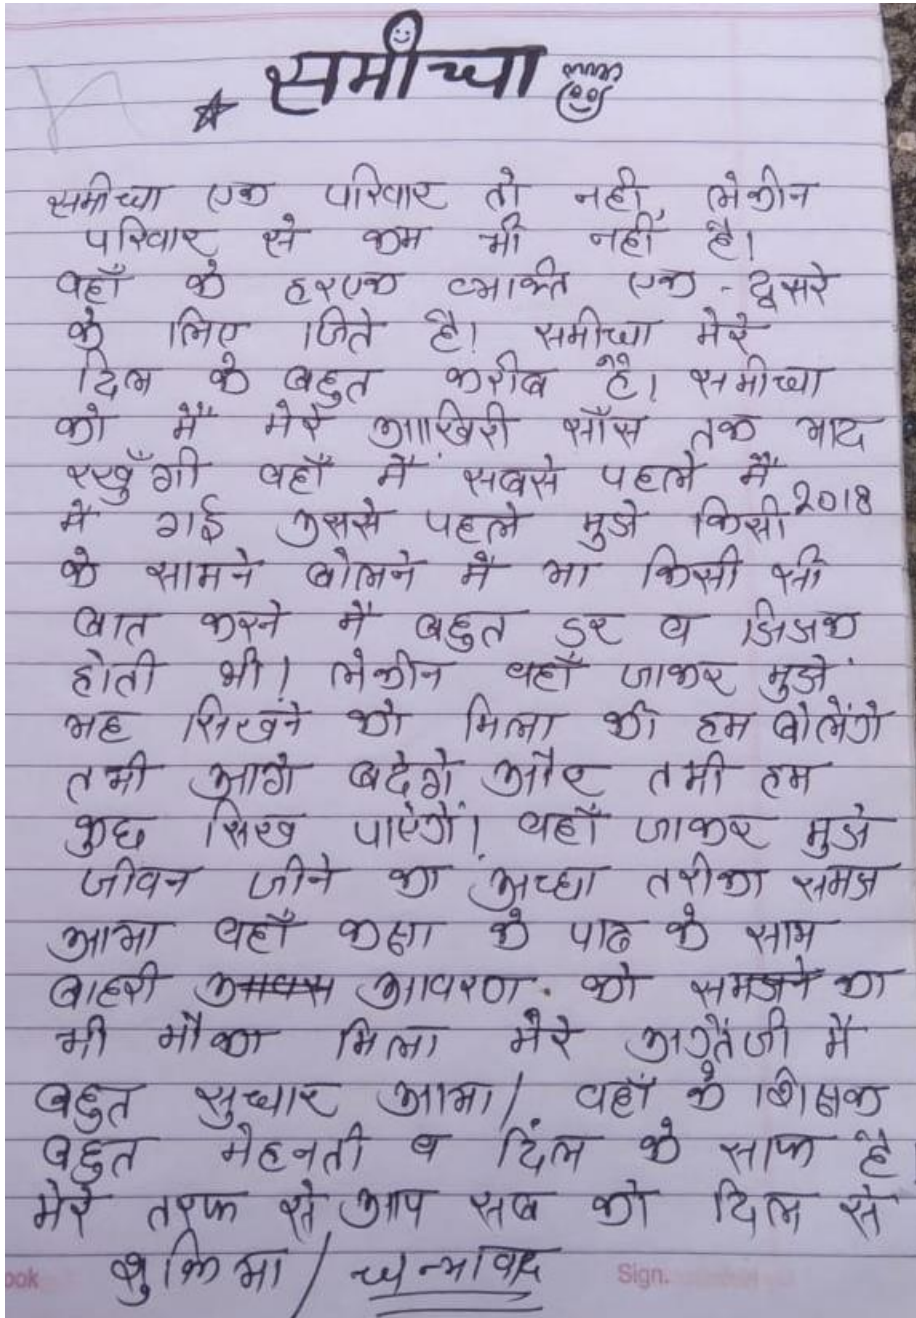 समीच्चा
समीच्चा एक परिवार तो नही, लेकीन
परिवार से कम भी नहीं है।
वहाँ के हरएक व्यक्ति एक - दूसरे
के लिए जिते है। समीच्चा मेरे
दिल के बहुत करीब है। समीच्चा
को मैं मेरे आखिरी साँस तक याद
रखुँगी वहाँ मैं सबसे पहले मैं 2018
मे गई उससे पहले मुझे किसी
के सामने बोलने मैं या किसी सी
बात करने मैं बहुत डर व झिजक
होती थी। लेकीन वहाँ जाकर मुझे
यह सिखने को मिला की हम बोलेंगे
तभी आगे बढेगे और तभी हम
कुछ सिख पाएंगें। वहाँ जाकर मुझे
जीवन जीने का अच्छा तरीका समज
आया वहाँ कक्षा के पाठ के साथ
बाहरी आवरण को समजने का
भी मौका मिला मेरे अग्रेंजी मैं
बहुत सुधार आया। वहाँ के शिक्षक
बहुत मेहनती व दिल के साफ है
मेरे तरफ से आप सब को दिल से
शुक्रिया / धन्यावाद
ook Sign.